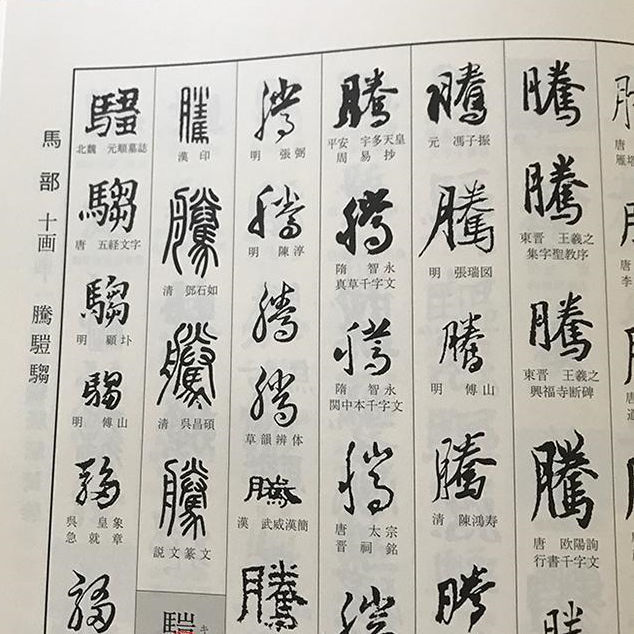 騰
騰
東晋 王羲之
集字聖教序
騰
東晋 王羲之
興福寺断碑
騰
唐 欧陽詢
行書千字文
騰
元 馮子振
騰
明 張瑞図
騰
明 傅山
騰
清 陳鴻寿
騰
騰
平安 宇多天皇
周易抄
騰
隋 智永
真草千字文
騰
隋 智永
関中本千字文
騰
唐 太宗
晋祠銘
騰
騰
明 張弼
騰
明 陳淳
騰
騰
草韻辨体
騰
漢 武威漢簡
騰
騰
漢 印
騰
清 鄧石如
騰
清 呉昌碩
騰
説文篆文
騶
北魏 元順墓誌
騶
唐 五経文字
騶
明 顧
騶
明 傅山
騶
呉 皇象
急就章
騶
馬部 十画 騰 騶